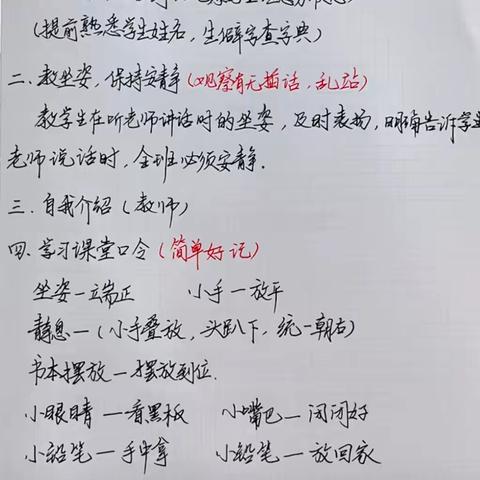 (提前熟悉学生姓名,生僻字查字典)
二、教坐姿,保持安静(观察有无插话,乱站)
教学生在听老师讲话时的坐姿,及时表扬,明确告诉学生
老师说话时,全班必须安静.
三、自我介绍(教师)
四、学习课堂口令(简单好记)
坐姿一立端正 小手一放平
静息一(小手叠放,头趴下,统一朝右)
书本摆放一摆放到位.
小眼睛一看黑板 小嘴巴一闭闭好
小铅笔一手中拿 小铅笔一放回家